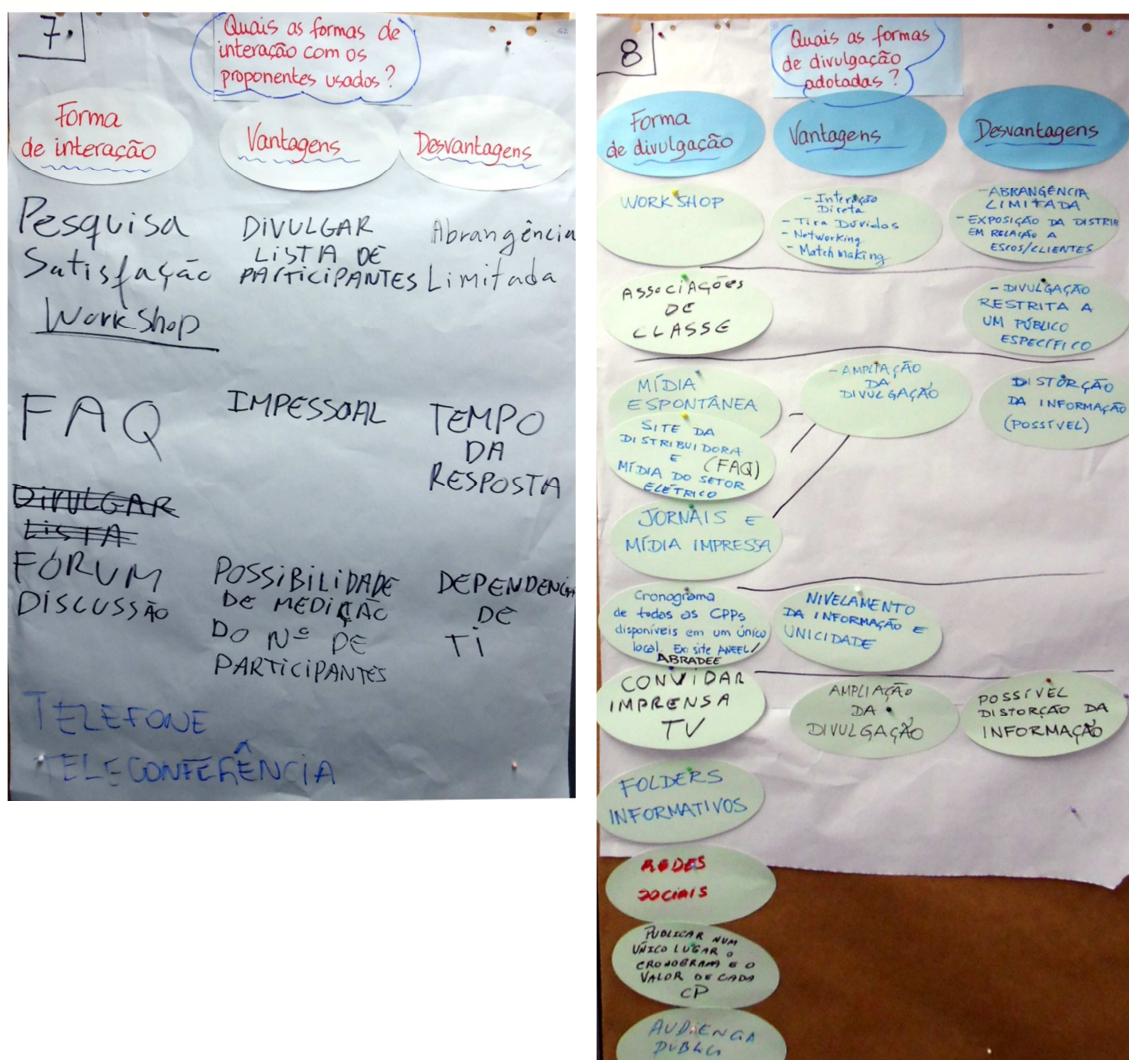 7.
Quais as formas de
interação com os
proponentes usados?
Forma
de interação
Vantagens
Desvantagens
Pesquisa
Satisfação
WorkShop
DIVULGAR
LISTA DE
PARTICIPANTES
Abrangência
Limitada
FAQ
IMPESSOAL
TEMPO
DA
RESPOSTA
DIVULGAR
LISTA
FÓRUM
DISCUSSÃO
POSSIBILIDADE
DE MEDIÇÃO
DO Nº DE
PARTICIPANTES
DEPENDENCIA
DE
TI
TELEFONE
TELECONFERÊNCIA
8
Quais as formas
de divulgação
adotadas?
Forma
de divulgação
Vantagens
Desvantagens
WORKSHOP
- Interação
Direta
- Tira Dúvidas
- Networking
- Match Making
- ABRANGÊNCIA
LIMITADA
- EXPOSIÇÃO DA DISTRIB
EM RELAÇÃO A
ESCOS/CLIENTES
ASSOCIAÇÕES
DE
CLASSE
- DIVULGAÇÃO
RESTRITA A
UM PÚBLICO
ESPECÍFICO
MÍDIA
ESPONTÂNEA
- AMPLIAÇÃO
DA
DIVULGAÇÃO
DISTORÇÃO
DA INFORMAÇÃO
(POSSÍVEL)
SITE DA
DISTRIBUIDORA
E (FAQ)
MÍDIA DO SETOR
ELÉTRICO
JORNAIS E
MÍDIA IMPRESSA
Cronograma
de todas as CPPs
disponíveis em um único
local. Ex: site ANEEL/
ABRADEE
NIVELAMENTO
DA INFORMAÇÃO E
UNICIDADE
CONVIDAR
IMPRENSA
TV
AMPLIAÇÃO
DA
DIVULGAÇÃO
POSSÍVEL
DISTORÇÃO DA
INFORMAÇÃO
FOLDERS
INFORMATIVOS
REDES
SOCIAIS
PUBLICAR NUM
ÚNICO LUGAR O
CRONOGRAMA E O
VALOR DE CADA
CP
AUDIENCIA
PUBLI